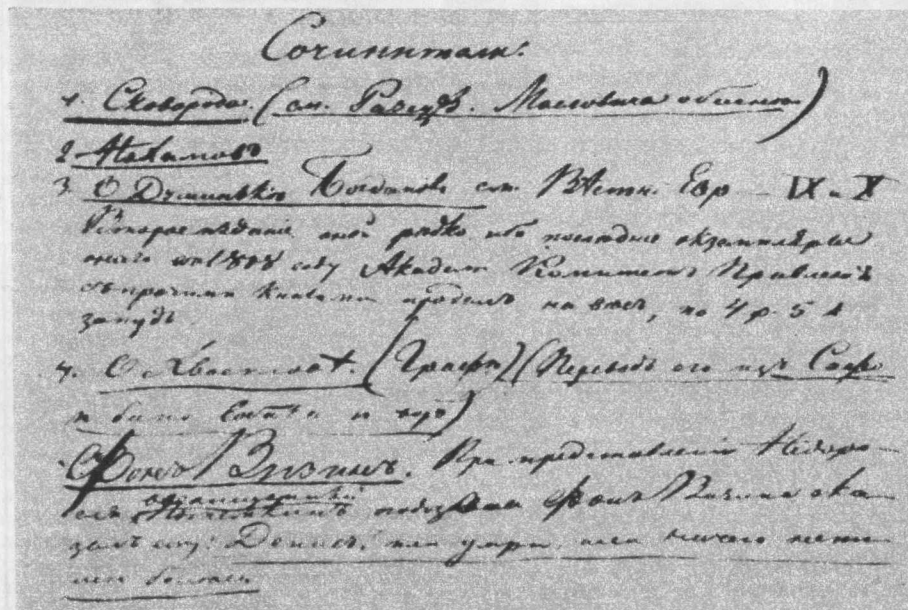 Сочинители:
1. Сковорода. (см. Разезд. Масловича о баснѣ)
2 Нахимовъ
3. О Душинькѣ Богданов. см. Вѣстн. Евр — IX и X
Второе изданiе оной рѣдко ибо последнiе экземпляры
оного въ 1808 году Академ Комитетъ Правленiя
съ прочими книгами продалъ на вѣсъ, по 4 р. 5 к
за пудъ.
4. О Хвостовѣ. (Графѣ) (Переводъ его изъ Сафо
и
Фонъ Визинъ. При представленiи Недоро—
сля Потемкинъ Фонъ Визина ска—
залъ ему: Денисъ! или умри, или ничего не пи—
ши больше